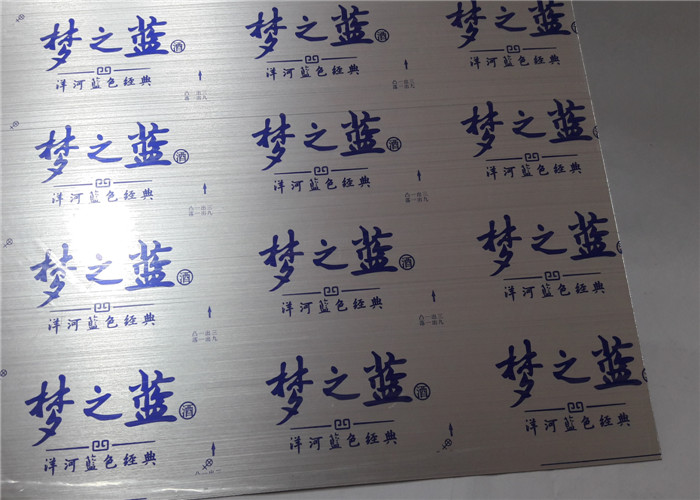 梦之蓝酒
洋河蓝色经典
梦之蓝酒
洋河蓝色经典
梦之蓝
洋河蓝色经典
梦之蓝酒
洋河蓝色经典
梦之蓝酒
洋河蓝色经典
梦之蓝
洋河蓝色经典
梦之蓝酒
洋河蓝色经典
梦之蓝酒
洋河蓝色经典
梦之蓝
洋河蓝色经典
梦之蓝酒
洋河蓝色经典
梦之蓝酒
洋河蓝色经典
梦之蓝
洋河蓝色经典